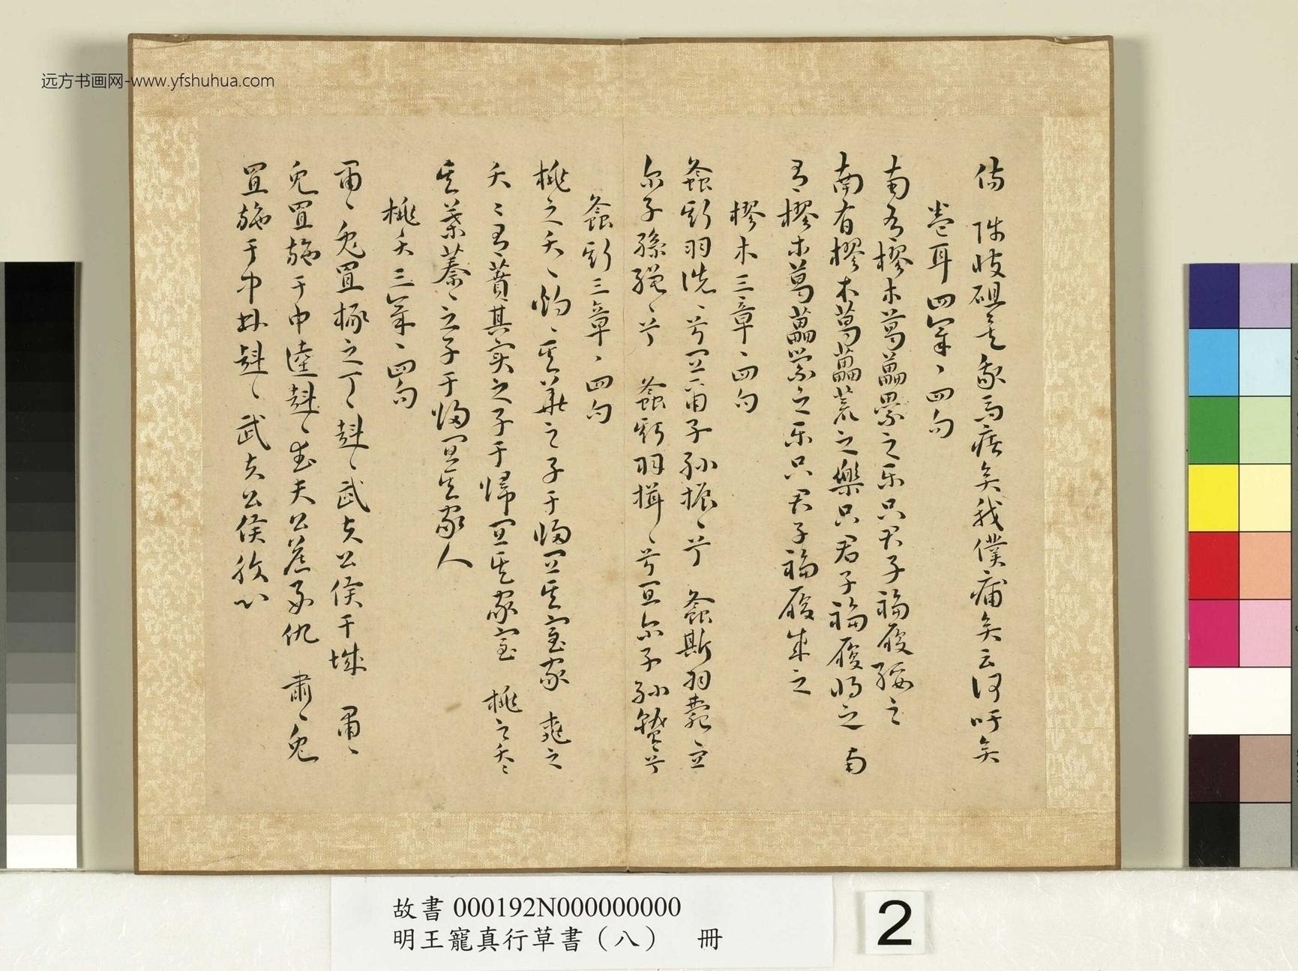 远方书画网-www.yfshuhua.com
傷 陟彼砠矣我馬瘏矣我僕痡矣云何吁矣
卷耳四章〻四句
南有樛木葛藟纍之乐只君子福履綏之
南有樛木葛藟荒之樂只君子福履将之 南
有樛木葛藟縈之乐只君子福履成之
樛木三章〻四句
螽斯羽詵〻兮宜爾子孙振〻兮 螽斯羽薨〻宜
尔子孫繩〻兮 螽斯羽揖〻兮宜尔子孙蟄〻兮
螽斯三章〻四句
桃之夭〻灼〻其華之子于歸宜其室家 桃之
夭〻有蕡其实之子于帰宜其家室 桃之夭〻
其葉蓁〻之子于歸宜其家人
桃夭三章〻四句
肅〻兔罝椓之丁〻赳〻武夫公侯干城 肅〻
兔罝施于中逵赳〻武夫公侯好仇 肅〻兔
罝施于中林赳〻武夫公侯腹心
故書 000192N000000000
明王寵真行草書（八） 冊
2